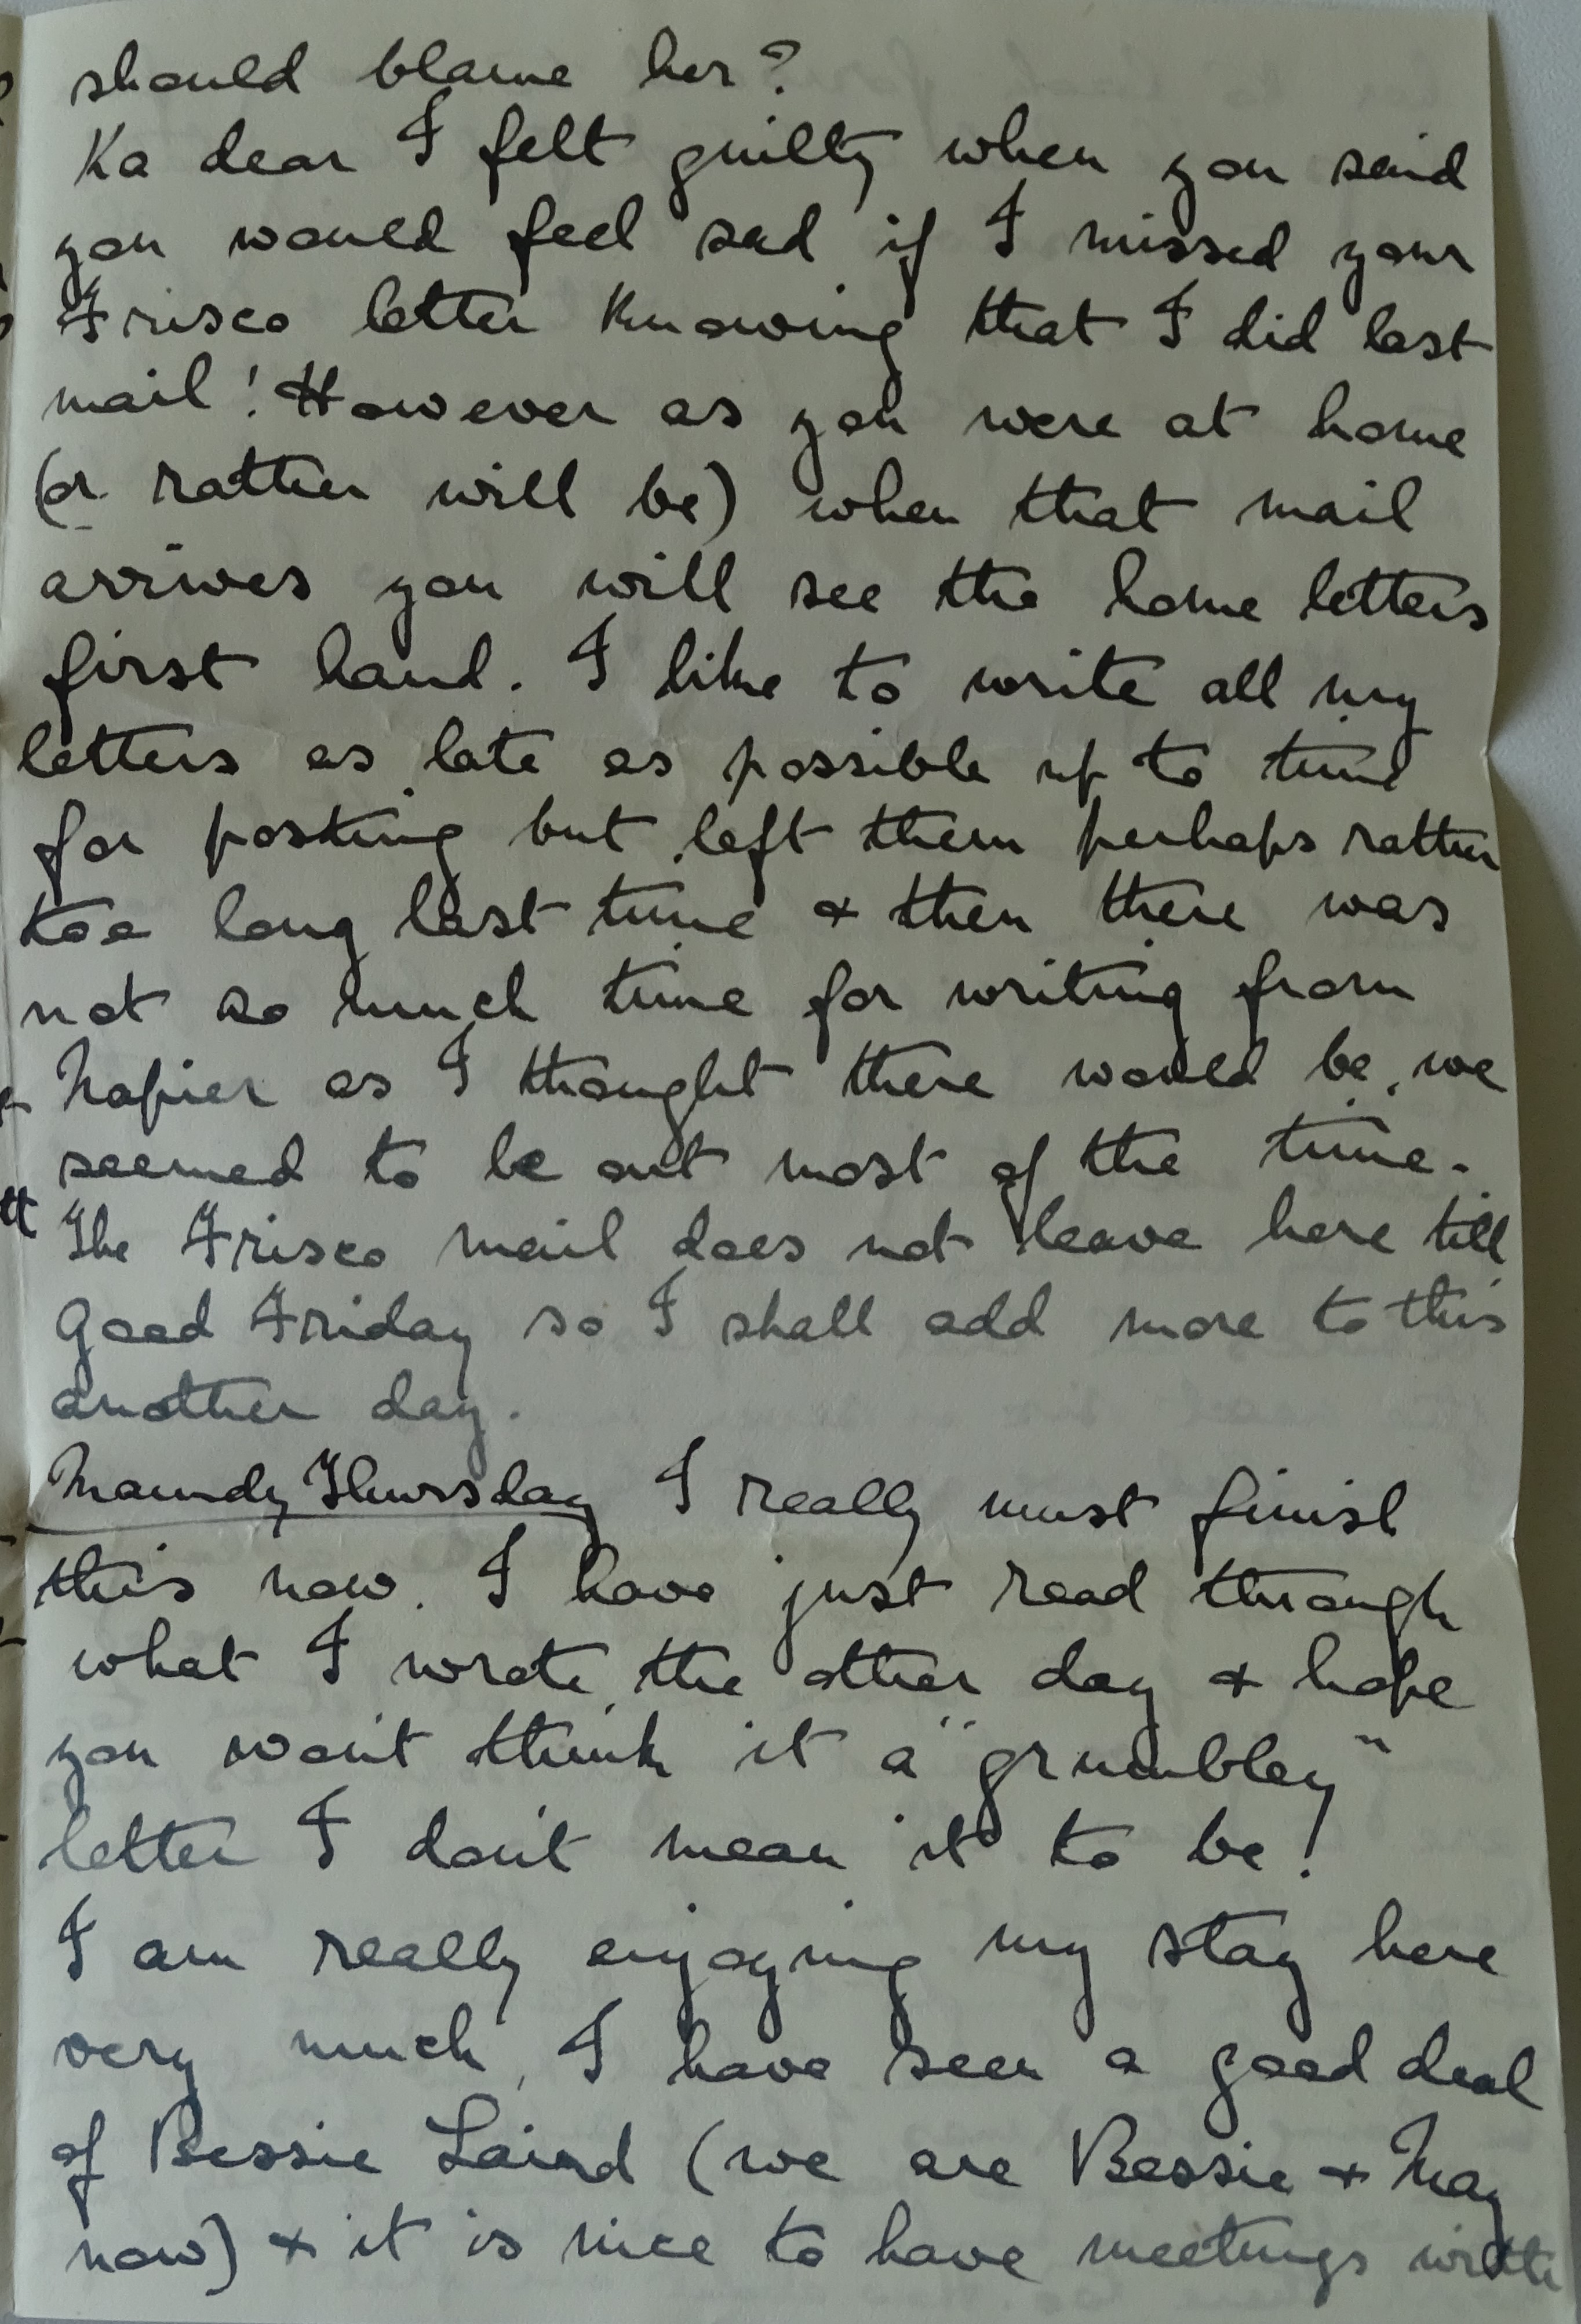 should blame her?
Ka dear I felt guilty when you said
you would feel sad if I missed your
Frisco letter knowing that I did last
mail! However as you were at home
(or rather will be) when that mail
arrives you will see the home letters
first hand. I like to write all my
letters as late as possible up to time
for posting but left them perhaps rather
too long last time & then there was
not so much time for writing from
Napier as I thought there would be, we
seemed to be out most of the time.
The Frisco mail does not leave here till
Good Friday so I shall add more to this
another day.
Maundy Thursday I really must finish
this now. I have just read through
what I wrote the other day & hope
you won't think it a "grumbley"
letter I don't mean it to be!
I am really enjoying my stay here
very much, I have seen a good deal
of Bessie Laird (we are Bessie & May
now) & it is nice to have meetings with